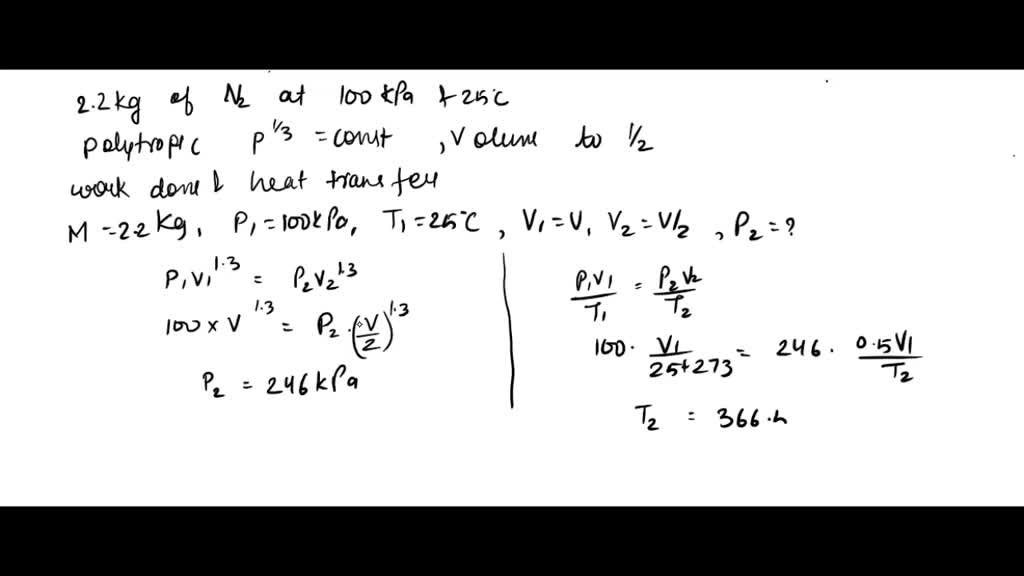 2.2kg of N₂ at 100 kPa & 25℃
polytropic P^1/3 = const , Volume to 1/2
work done & heat transfer
M = 2.2 Kg, P₁ = 100kPa, T₁ = 25℃, V₁ = V, V₂ = V/2, P₂ = ?
P₁V₁^1.3 = P₂V₂^1.3
100 × V^1.3 = P₂ · (V/2)^1.3
P₂ = 246 kPa
P₁V₁/T₁ = P₂V₂/T₂
100 · V₁/25+273 = 246 · 0.5V₁/T₂
T₂ = 366.